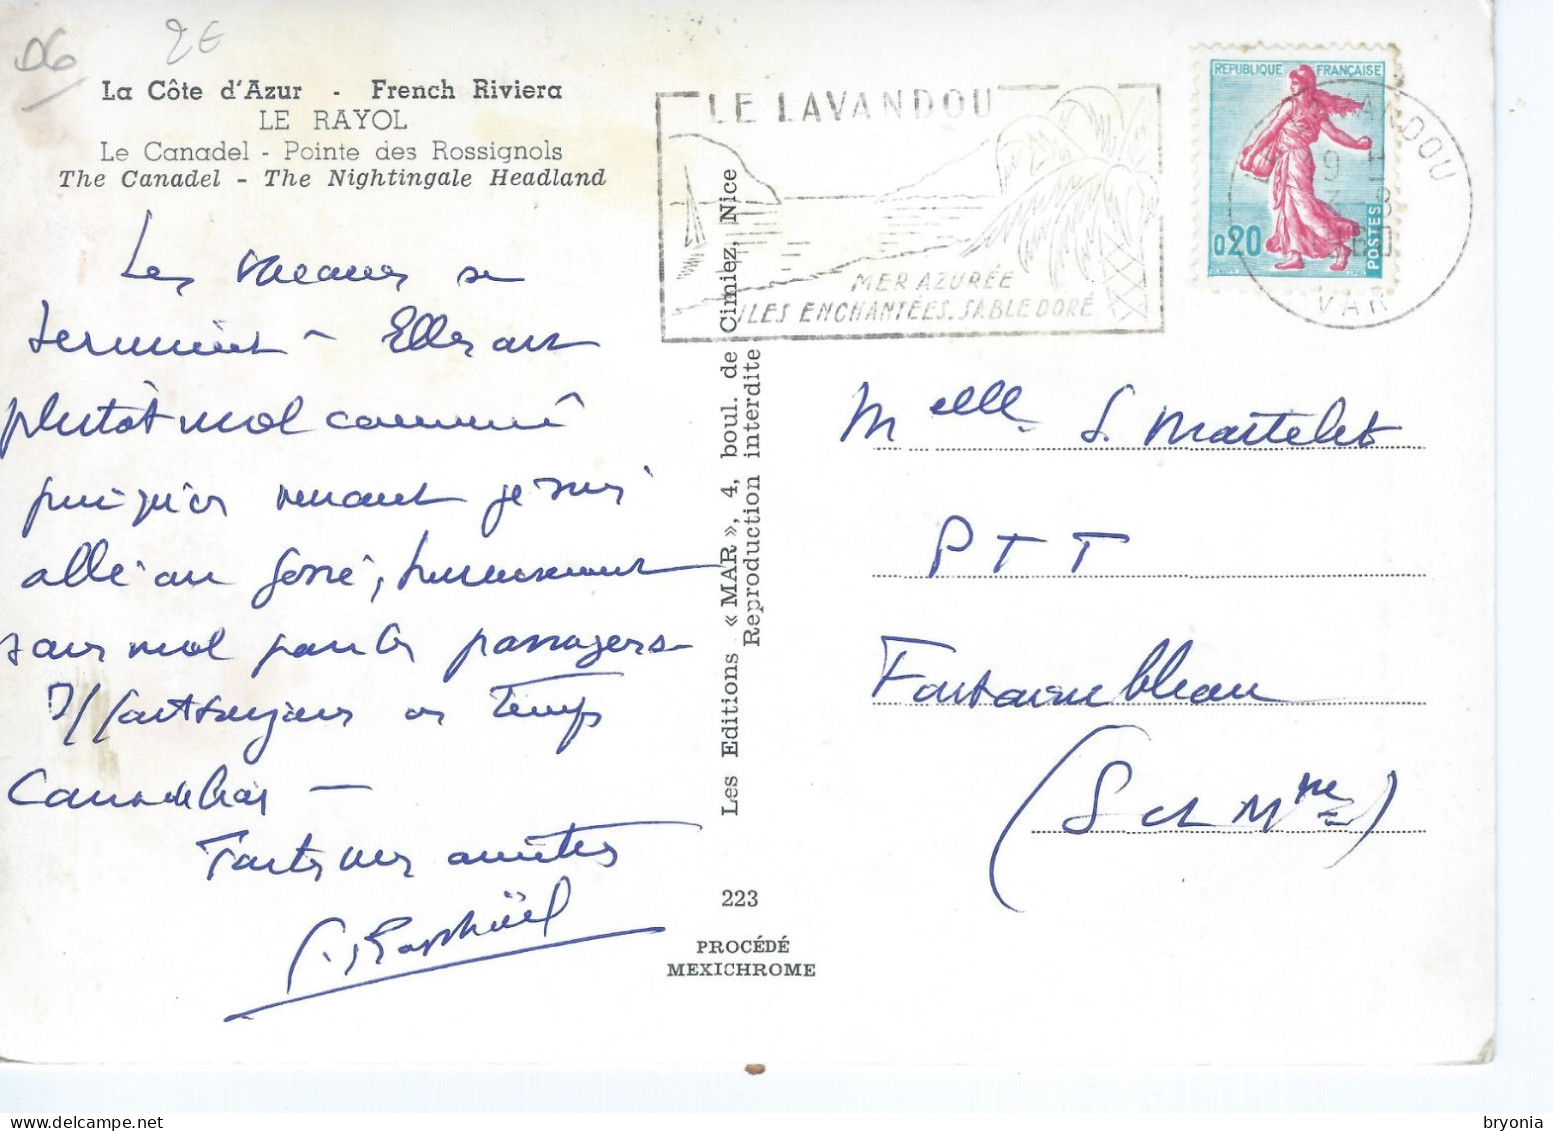 06
2€
La Côte d'Azur - French Riviera
LE RAYOL
Le Canadel - Pointe des Rossignols
The Canadel - The Nightingale Headland
Les vacances se
terminent - Elles ont
plutôt mal commencé
puisqu'en venant je suis
allé au fossé, heureusement
sans mal pour les passagers -
Il fait toujours un temps
Toutes mes amitiés
Raphaël
Les Editions « MAR », 4, boul. de Cimiez, Nice
Reproduction interdite
223
PROCÉDÉ
MEXICHROME
LE LAVANDOU
MER AZURÉE
ILES ENCHANTÉES. SABLE DORÉ
REPUBLIQUE FRANÇAISE
0,20
POSTES
LAVANDOU
19 H
3 - 8
VAR
Melle S. Martelet
PTT
Fontainebleau
(S et Mne)
bryonia